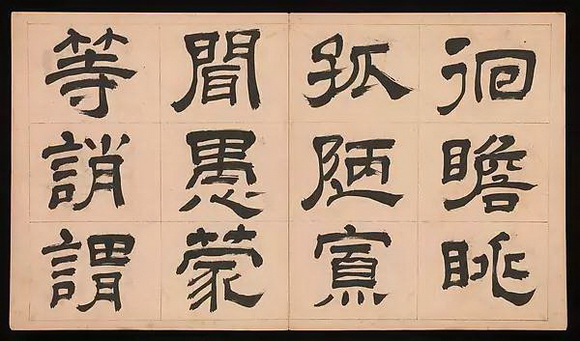 徊瞻眺
孤陋寡
聞愚蒙
等誚謂